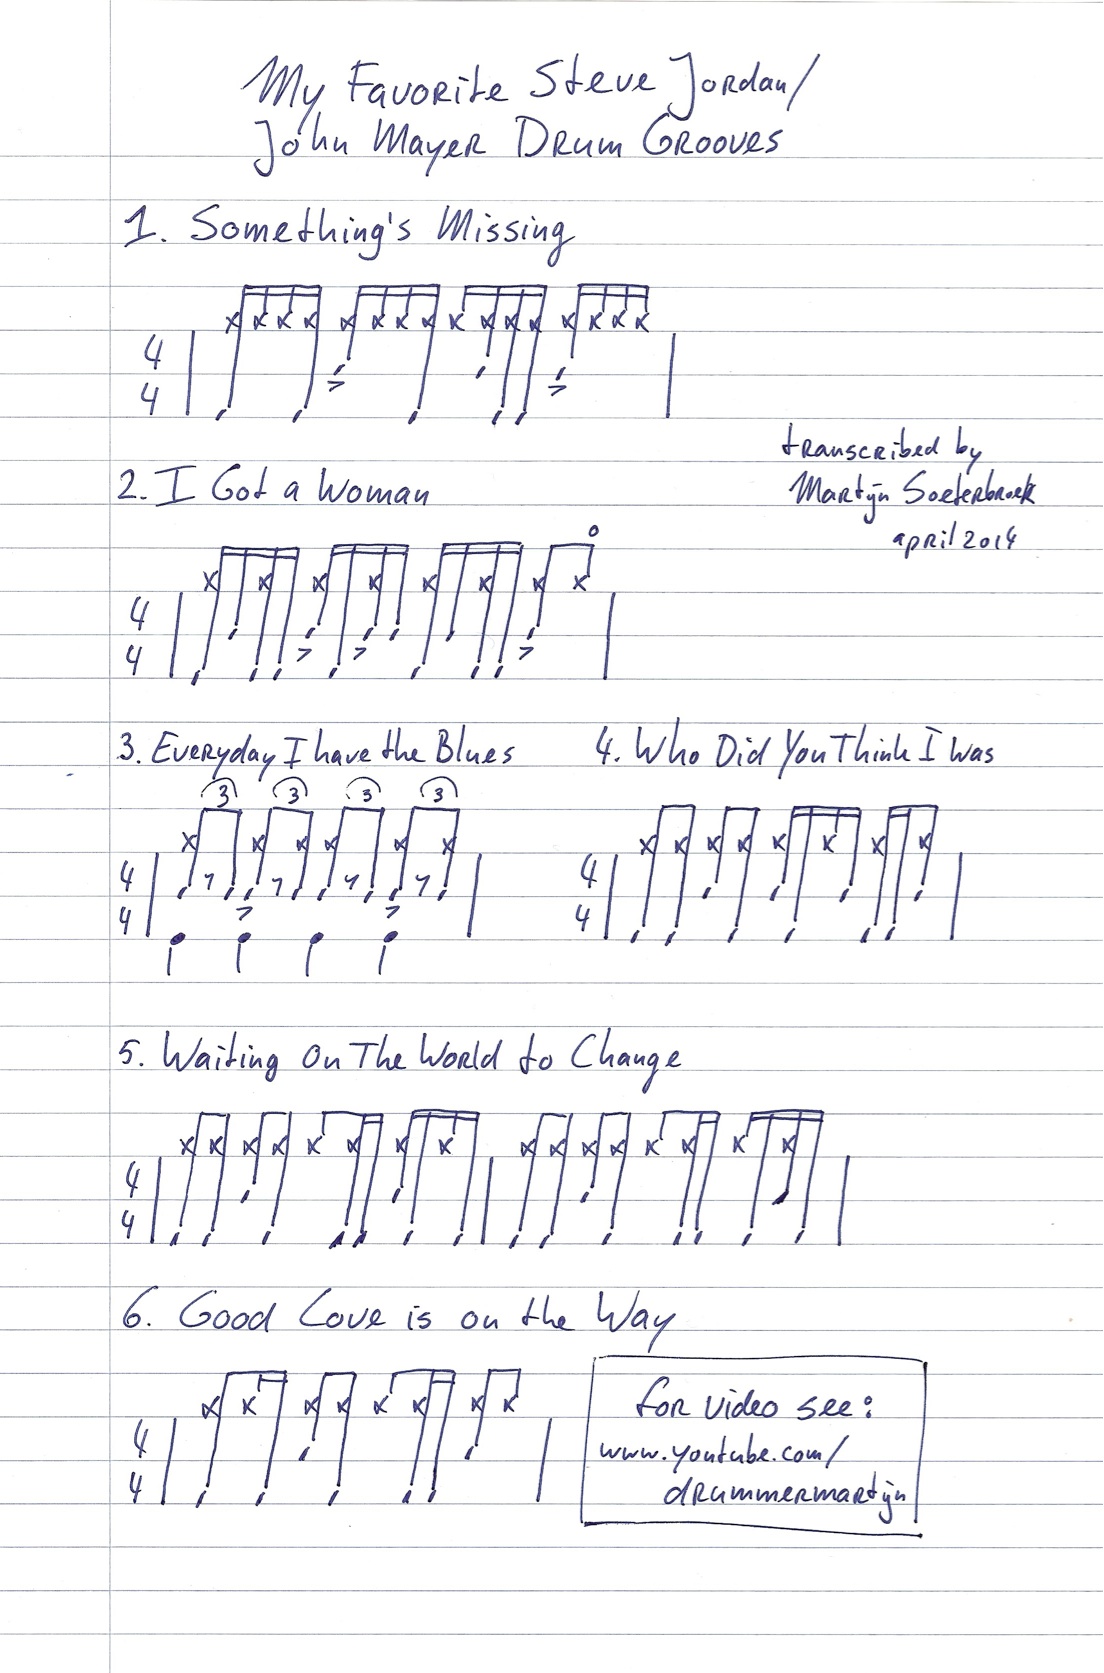 My Favorite Steve Jordan/
John Mayer Drum Grooves
1. Something's Missing
4
4
transcribed by
Martijn Soeterbroek
april 2014
2. I Got a Woman
4
4
3. Everyday I have the Blues
4. Who Did You Think I Was
3 3 3 3
4
4
4
4
5. Waiting On The World to Change
4
4
6. Good Love is on the Way
4
4
for video see:
www.youtube.com/
drummermartijn